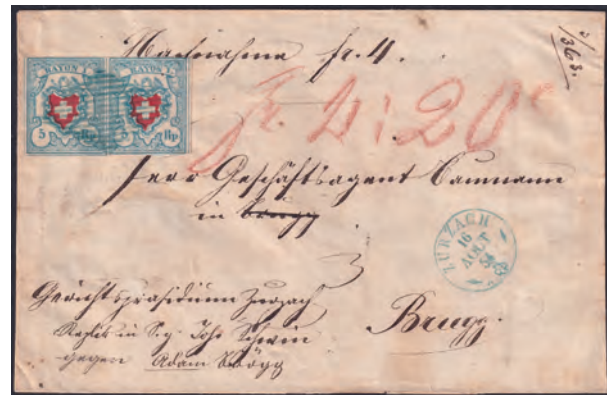 Nachnahme fr. 4.
2/363.
RAYON I
RAYON I
5 Rp.
5 Rp.
Fr. 4:20 c
Herr Geschäftsagent Baumann
in Brugg
ZURZACH
16
AOUT
54
Gerichtspräsidium Zurzach
in Sig. Joh.
gegen Adam
Brugg.